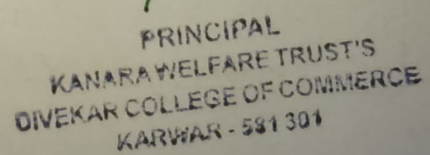 PRINCIPAL
KANARA WELFARE TRUST'S
DIVEKAR COLLEGE OF COMMERCE
KARWAR - 581 301